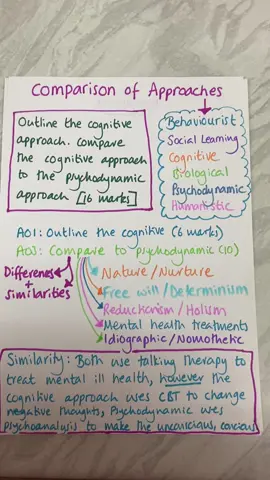 Comparison of Approaches
Outline the cognitive
approach. Compare
the cognitive approach
to the psychodynamic
approach [16 marks]
Behaviourist
Social Learning
Cognitive
Biological
Psychodynamic
Humanistic
AO1: Outline the cognitive (6 marks)
AO3: Compare to psychodynamic (10)
Differences
+
similarities
Nature/Nurture
Free will/Determinism
Reductionism/Holism
Mental health treatments
Idiographic/Nomothetic
Similarity: Both use talking therapy to
treat mental ill health, however the
cognitive approach uses CBT to change
negative thoughts, Psychodynamic uses
psychoanalysis to make the unconscious, conscious